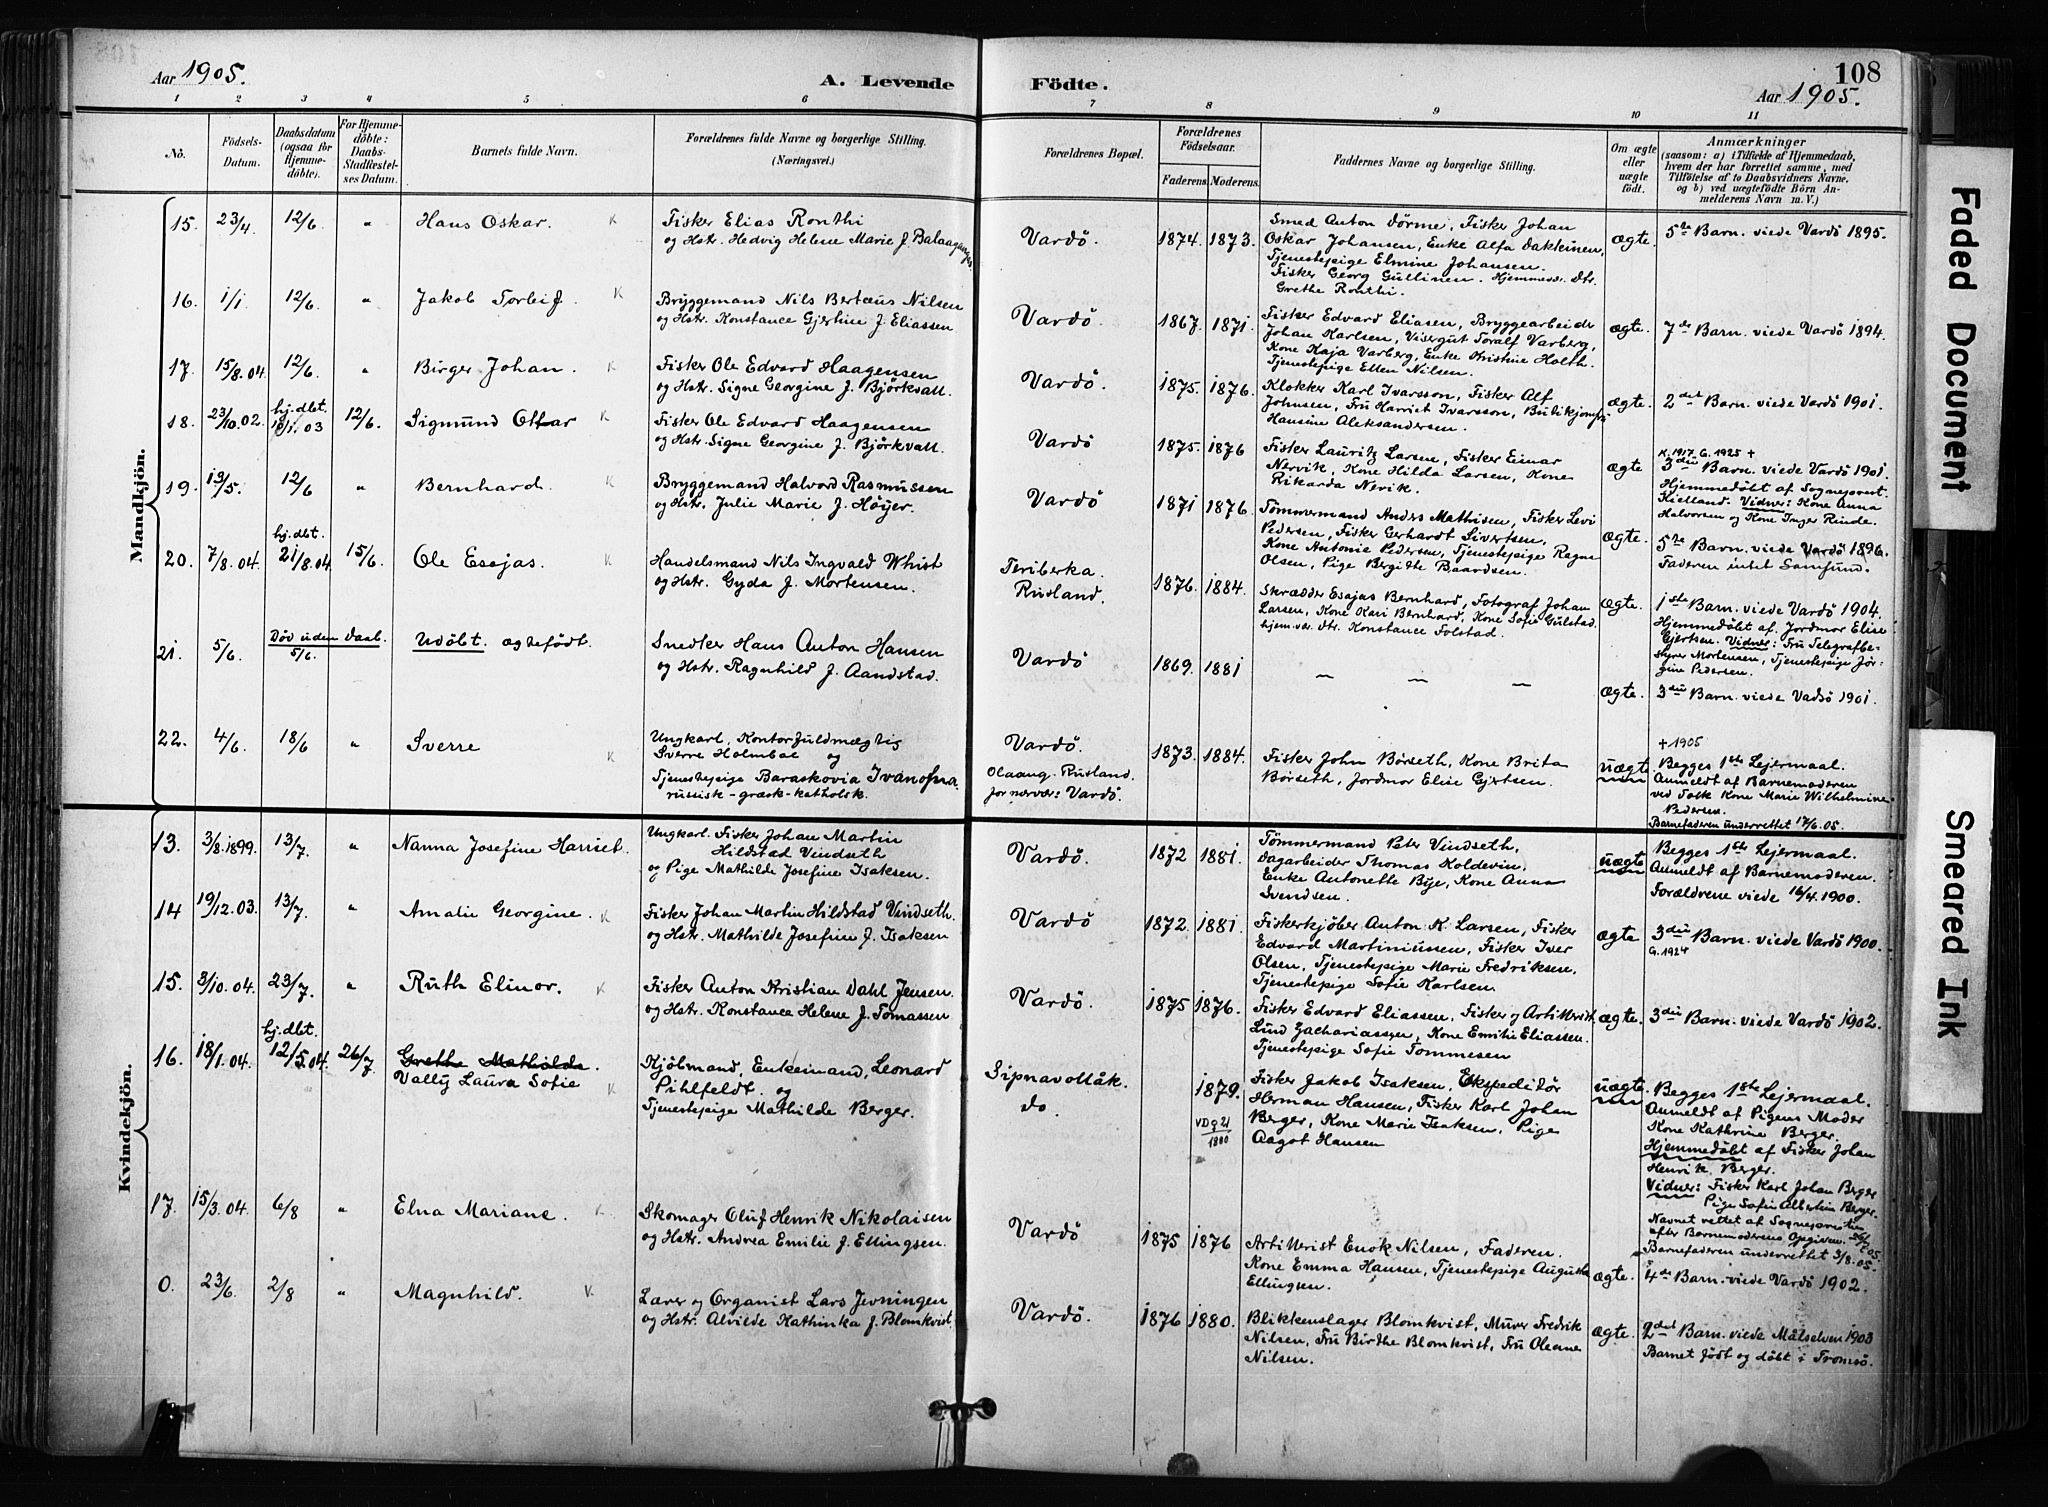 Aar 1905.
A. Levende
Födte.
108
Aar 1905.
1 2 3 4 5 6 7 8 9 10 11
No.
Födsels-
Datum.
Daabsdatum
(ogsaa for
Hjemme-
döbte).
For Hjemme-
döbte:
Daabs-
Stadfæstel-
ses Datum.
Barnets fulde Navn.
Forældrenes fulde Navne og borgerlige Stilling.
(Næringsvei.)
Forældrenes Bopæl.
Forældrenes
Födselsaar.
Faderens. Moderens.
Faddernes Navne og borgerlige Stilling.
Om ægte
eller
uægte
födt.
Anmærkninger
(saasom: a) i Tilfælde af Hjemmedaab,
hvem der har forrettet samme, med
Tilföielse af to Daabsvidners Navne.
og b) ved uægtefödte Börn An-
melderens Navn m. V.)
Mandkjön.
15. 23/4 12/6 " Hans Oskar. K
Fisker Elias Ronthi
og Hstr. Hedvig Helene Marie f. Balaaganges.
Vardö. 1874. 1873.
Smed Anton Dörme, Fisker Johan
Oskar Johansen, Enke Alfa Dakkinen,
Tjenestepige Elmine Johansen.
Fisker Georg Gullinen. Hjemmevær. Dtr.
Grethe Ronthi.
ægte. 5te Barn. viede Vardö 1895.
16. 1/1 12/6. " Jakob Torleif. K
Bryggemand Nils Bertæus Nilsen
og Hstr. Konstance Gjertine f. Eliassen
Vardö. 1867. 1871.
Fisker Edvard Eliasen, Bryggearbeider
Johan Karlsen, Visergut Toralf Varberg,
Kone Kaja Varberg, Enke Kristine Holth.
Tjenestepige Ellen Nilsen.
ægte. 7de Barn. viede Vardö 1894.
17. 15/8.04. 12/6. " Birger Johan. K
Fisker Ole Edvard Haagensen
og Hstr. Signe Georgine f. Björkvatl.
Vardö. 1875. 1876.
Klokker Karl Ivarsson, Fisker Alf
Johnsen, Fru Harriet Ivarsson, Butikjomfru
Hansine Aleksandersen.
ægte. 2det Barn. viede Vardö 1901.
18. 23/10.02. hj.dbt. 18/1.03 12/6. Sigmund Ottar K
Fisker Ole Edvard Haagensen
og Hstr. Signe Georgine f. Björkvatl.
Vardö 1875. 1876
Fisker Lauritz Larsen, Fisker Einar
Nervik, Kone Hilda Larsen, Kone
Rikarda Nervik.
ægte
K. 1917. G. 1925 +
3die Barn. viede Vardö 1901.
Hjemmedöbt af Sogneprest
Kielland. Vidner: Kone Anna
Halvorsen og Kone Inger Rinde.
19. 13/5. 12/6 " Bernhard. K
Bryggemand Halvord Rasmussen
og Hstr. Julie Marie f. Höyer.
Vardö 1871 1876.
Tömmermand Anders Mathisen, Fisker Levi
Pedersen, Fisker Gerhardt Sivertsen,
Kone Antonie Pedersen, Tjenestepige Ragna
Olsen, Pige Bergithe Baardsen.
ægte. 5te Barn. viede Vardö 1896.
Faderen intet Samfund.
20. 7/8.04. hj.dbt. 21/8.04. 15/6. Ole Esajas. K
Handelsmand Nils Ingvald Whist
og Hstr. Gyda f. Mortensen.
Teriberka.
Rusland.
1876. 1884.
Skrædder Esajas Bernhard, Fotograf Johan
Larsen, Kone Kari Bernhard, Kone Sofie Gulstad,
hjem.vær. dtr. Konstance Folstad.
ægte. 1ste Barn. viede Vardö 1904.
Hjemmedöbt af Jordmor Elise
Gjertsen. Vidner: Fru Telegrafbe-
styrer Mortensen, Tjenestepige Jör-
gine Pedersen.
21. 5/6. Död uden Daab 5/6. Udöbt. ægtefödt.
Snedker Hans Anton Hansen
og Hstr. Ragnhild f. Aandstad.
Vardö 1869. 1881
ægte. 3die Barn. viede Vadsö 1901.
22. 4/6. 18/6 " Sverre K
Ungkarl, Kontorfuldmægtig
Sverre Holmboe og
Tjenestepige Baraskovia Ivanofna.
russisk-græsk-katholsk.
Vardö.
Olaang. Rusland.
for nærvær: Vardö.
1873. 1884.
Fisker John Börseth, Kone Brita
Börseth, Jordmor Elise Gjertsen.
uægte
+ 1905
Begges 1ste Lejermaal.
Anmeldt af Barnemoderen
ved Tolk Kone Marie Wilhelmine
Pedersen.
Barnefaderen underrettet 17/6.05.
Kvindekjön.
13. 3/8.1899. 13/7. " Nanna Josefine Harriet.
Ungkarl. Fisker Johan Martin
Hildstad Vindseth
og Pige Mathilde Josefine Isaksen.
Vardö. 1872 1881.
Tömmermand Peter Vindseth,
Dagarbeider Thomas Holdevin,
Enke Antonette Bye, Kone Anna
Svendsen.
uægte Begges 1ste Lejermaal.
Anmeldt af Barnemoderen.
Forældrene viede 16/4.1900.
14 19/12.03. 13/7. " Amalie Georgine. K
Fisker Johan Martin Hildstad Vindseth.
og Hstr. Mathilde Josefine f. Isaksen
Vardö 1872. 1881.
Fiskerkjöber Anton K. Larsen, Fisker
Edvard Martiniussen, Fisker Iver
Olsen, Tjenestepige Marie Fredriksen,
Tjenestepige Sofie Karlsen.
ægte 3die Barn. viede Vardö 1900.
G. 1924
15. 3/10.04. 23/7. " Ruth Elinor. K
Fisker Anton Kristian Dahl Jensen.
og Hstr. Konstance Helene f. Tomassen
Vardö. 1875 1876.
Fisker Edvard Eliassen, Fisker og Artillerist
Lund Zachariassen, Kone Emilie Eliassen.
Tjenestepige Sofie Tommesen
ægte. 3die Barn. viede Vardö 1902.
16. 18/1.04. hj.dbt. 12/5.04. 26/7. Grethe Mathilde.
Vally Laura Sofie K
Kjöbmand, Enkemand, Leonard
Pihlfeldt. og
Tjenestepige Mathilde Berger.
Sipnavollåk.
do.
1879.
VD g 21
1880
Fisker Jakob Isaksen, Ekspeditör
Herman Hansen, Fisker Karl Johan
Berger, Kone Marie Isaksen, Pige
Aagot Hansen
uægte. Begges 1ste Lejermaal.
Anmeldt af Pigens Moder
Kone Kathrine Berger.
Hjemmedöbt af Fisker Johan
Henrik Berger.
Vidner: Fisker Karl Johan Berger
Pige Sofie Albertine Berger.
Navnet rettet af Sognepresten
efter Barnemoderens Opgivende 26/7 05
Barnefaderen underrettet 3/8.05.
17. 15/3.04. 6/8 " Elna Mariane. K
Skomager Oluf Henrik Nikolaisen
og Hstr. Andrea Emilie f. Ellingsen.
Vardö 1875 1876
Artillerist Enok Nilsen, Faderen.
Kone Emma Hansen, Tjenestepige Augusta
Ellingsen.
ægte. 4de Barn. viede Vardö 1902.
0. 23/6. 2/8 " Magnhild. K
Lærer og Organist Lars Jevningen
og Hstr. Alvilde Kathinka f. Blomkvist.
Vardö. 1876 1880.
Blikkenslager Blomkvist, Murer Fredrik
Nilsen, Fru Birthe Blomkvist, Fru Oleane
Nilsen.
ægte. 2det Barn. viede Målselven 1903
Barnet födt og döbt i Tromsö.
Faded Document
Smeared Ink